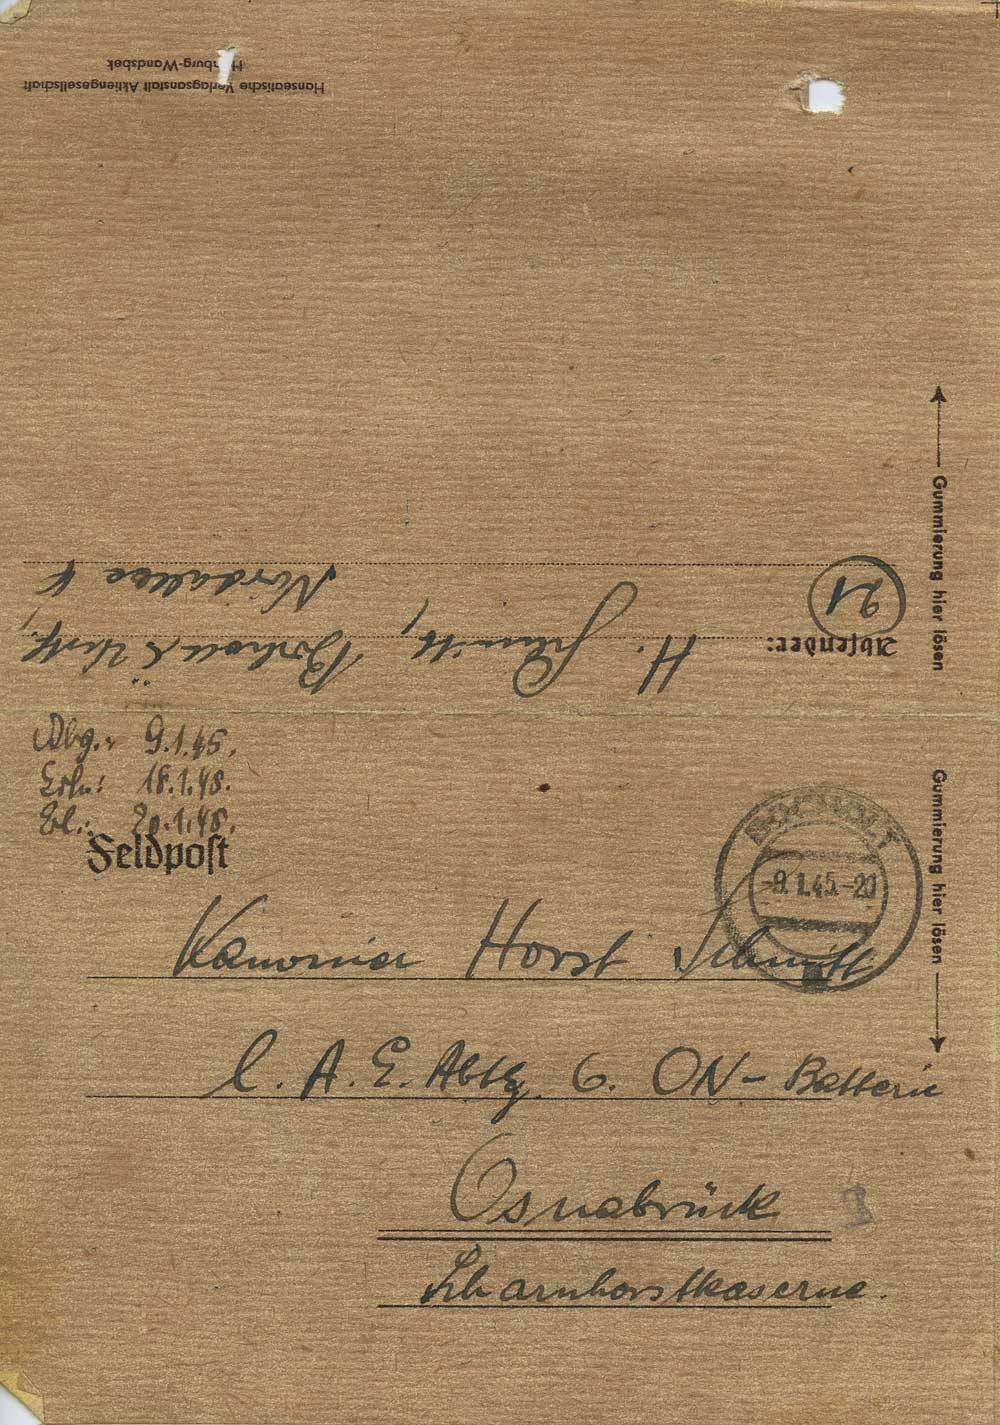 Hanseatische Verlagsanstalt Aktiengesellschaft
Hamburg-Wandsbek
Gummierung hier lösen
Absender: H. Schmitt, Bocholt i. Westf.,
21
Nordallee
Abg.: 9.1.45.
18.1.45.
20.1.45.
Feldpost
BOCHOLT
-9.1.45.-20
Gummierung hier lösen
Kanonier Horst Schmitt
l. A. E. Abtlg. 6. ON-Batterie
Osnabrück
Scharnhorstkaserne.